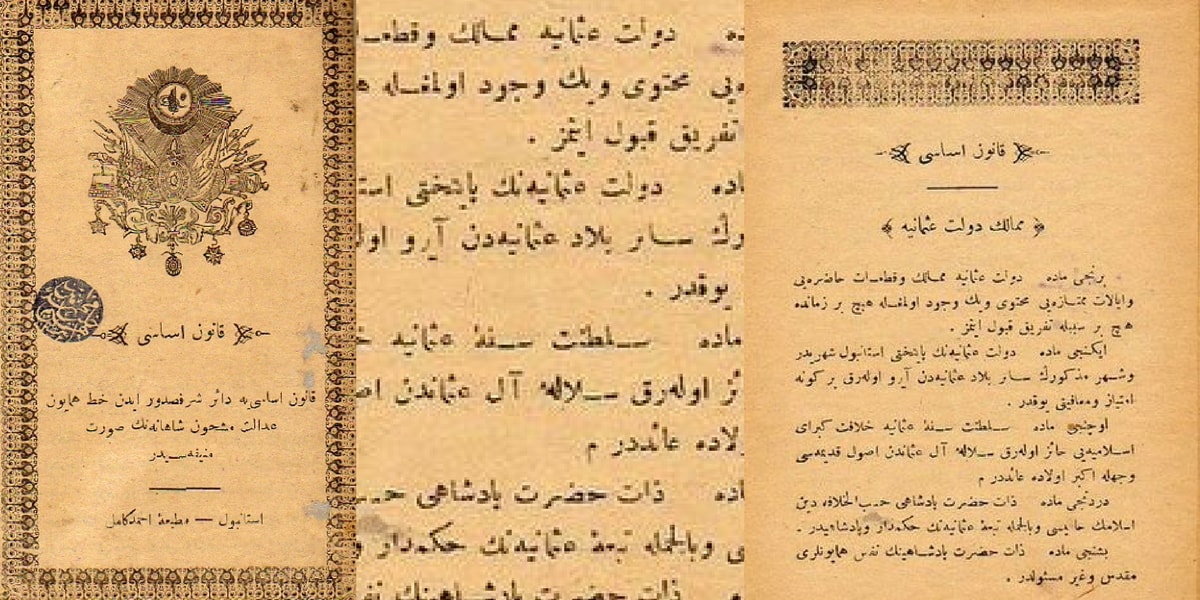 قانون اساسی
قانون اساسی‌یه دائر شرفصدور ایدن خط همایون
عدالت مشحون شاهانه‌نك صورت
منیفه‌سیدر
استانبول — مطبعهٔ احمدکامل
ده دولت عثمانیه ممالك وقطعـ
محتوی ویك وجود اولمغله
تفریق قبول ایتمز .
ماده دولت عثمانیه‌نك پایتختی استا
سائر بلاد عثمانیه‌دن آیرو اولـ
یوقدر .
ماده سلطنت سنیهٔ عثمانیه
ئز اوله‌رق سلالهٔ آل عثماندن اصـ
ولاده عائددر م
ماده ذات حضرت پادشاهی حسب
ی وبالجمله تبعهٔ عثمانیه‌نك حکمدار و
ذات حضرت پادشاهینك نفـ
قانون اساسی
﴿ ممالك دولت عثمانیه ﴾
برنجی ماده دولت عثمانیه ممالك وقطعات حاضره‌یی
وایالات ممتازه‌یی محتوی ویك وجود اولمغله هیچ بر زمانده
هیچ بر سببله تفریق قبول ایتمز .
ایکنجی ماده دولت عثمانیه‌نك پایتختی استانبول شهریدر
وشهر مذکورك سائر بلاد عثمانیه‌دن آیرو اوله‌رق برکونه
امتیاز ومعافیتی یوقدر .
اوچنجی ماده سلطنت سنیهٔ عثمانیه خلافت کبرای
اسلامیه‌یی حائز اوله‌رق سلالهٔ آل عثماندن اصول قدیمه‌سی
وجهله اکبر اولاده عائددر م
دردنجی ماده ذات حضرت پادشاهی حسب الخلافه دین
اسلامك حامیسی وبالجمله تبعهٔ عثمانیه‌نك حکمدار وپادشاهیدر .
بشنجی ماده ذات حضرت پادشاهینك نفس همایونلری
مقدس وغیر مسئولدر .